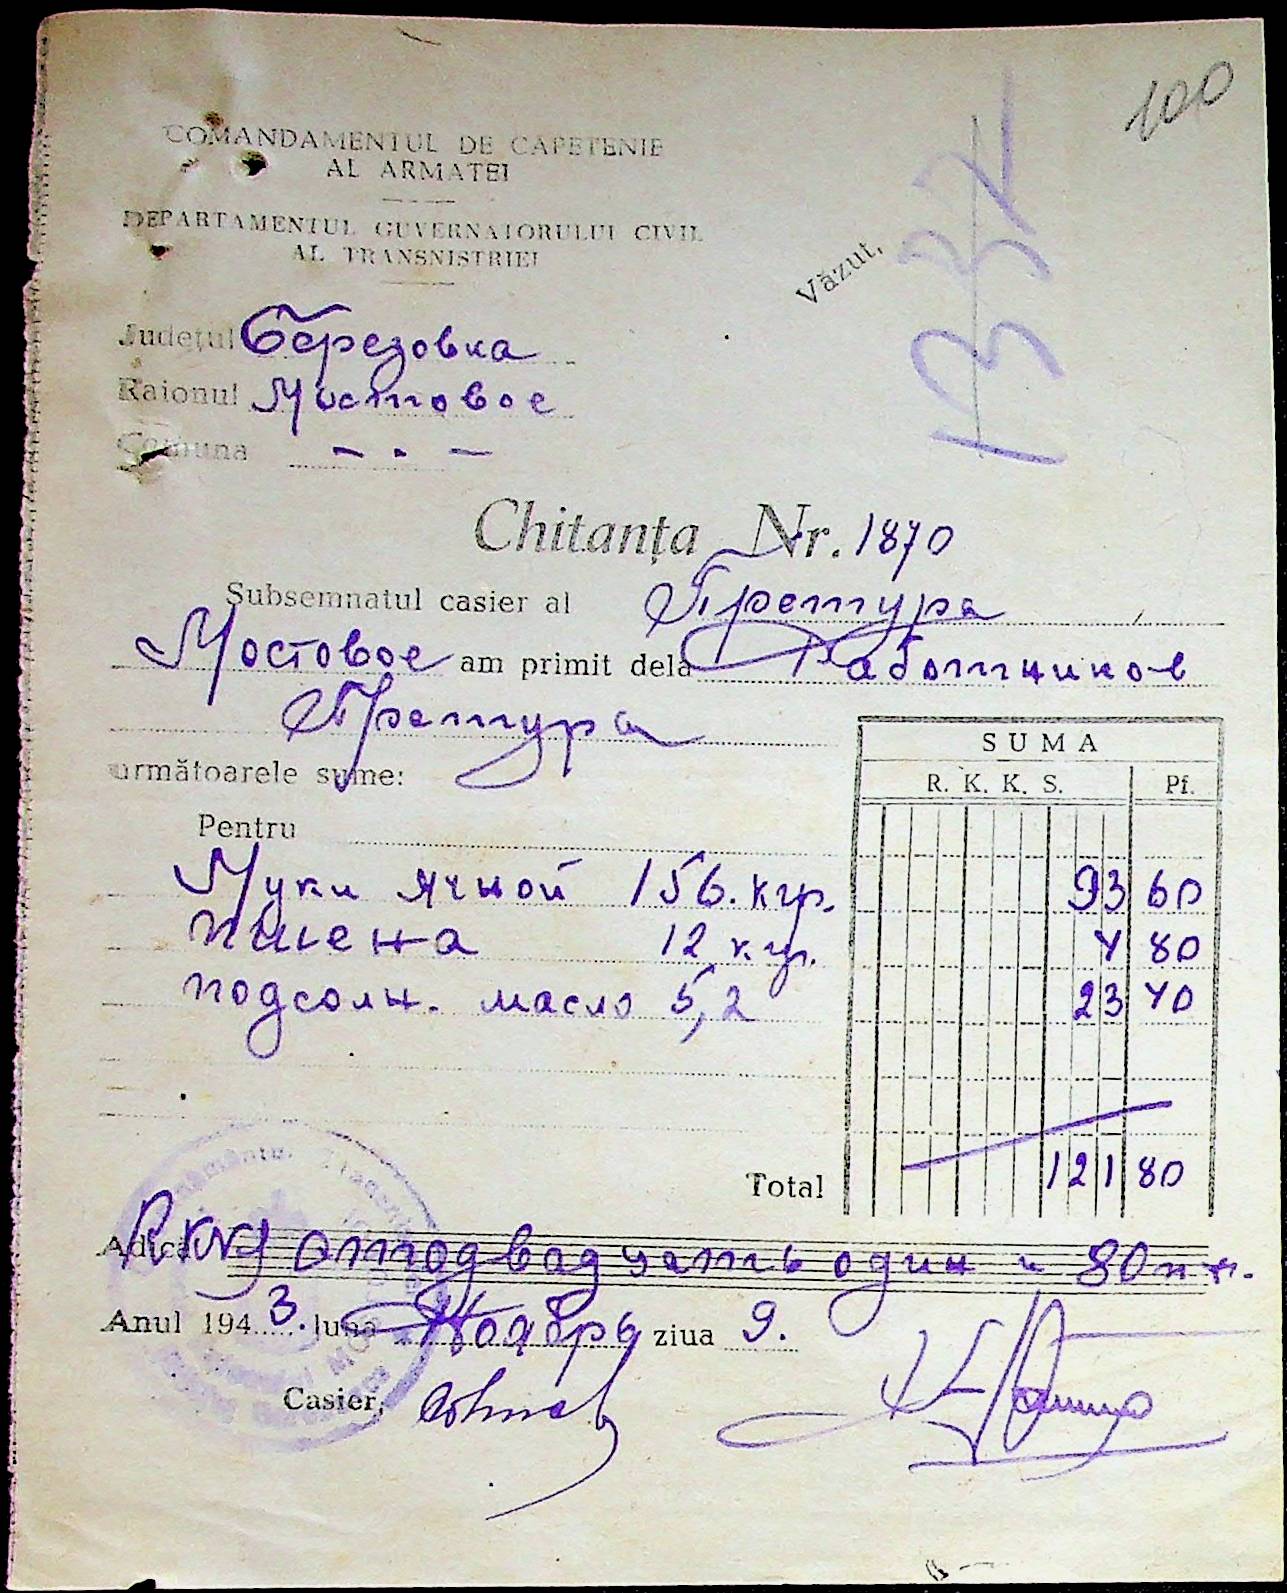 100
COMANDAMENTUL DE CAPETENIE
AL ARMATEI
DEPARTAMENTUL GUVERNATORULUI CIVIL
AL TRANSNISTRIEI
Văzut,
Județul Березовка
Raionul Мостовое
Comuna - . -
Chitanța Nr. 1870
Subsemnatul casier al Претура
Мостовое am primit dela Работников
Претура
următoarele sume:
SUMA
R. K. K. S. Pf.
Pentru
Муки ячной 156. кгр. 93 60
пшена 12 кгр. 4 80
подсолн. масло 5,2 23 40
Total 121 80
Adică RKKS стодвадцать один и 80 пф.
Anul 1943. luna Ноября ziua 9.
Casier,